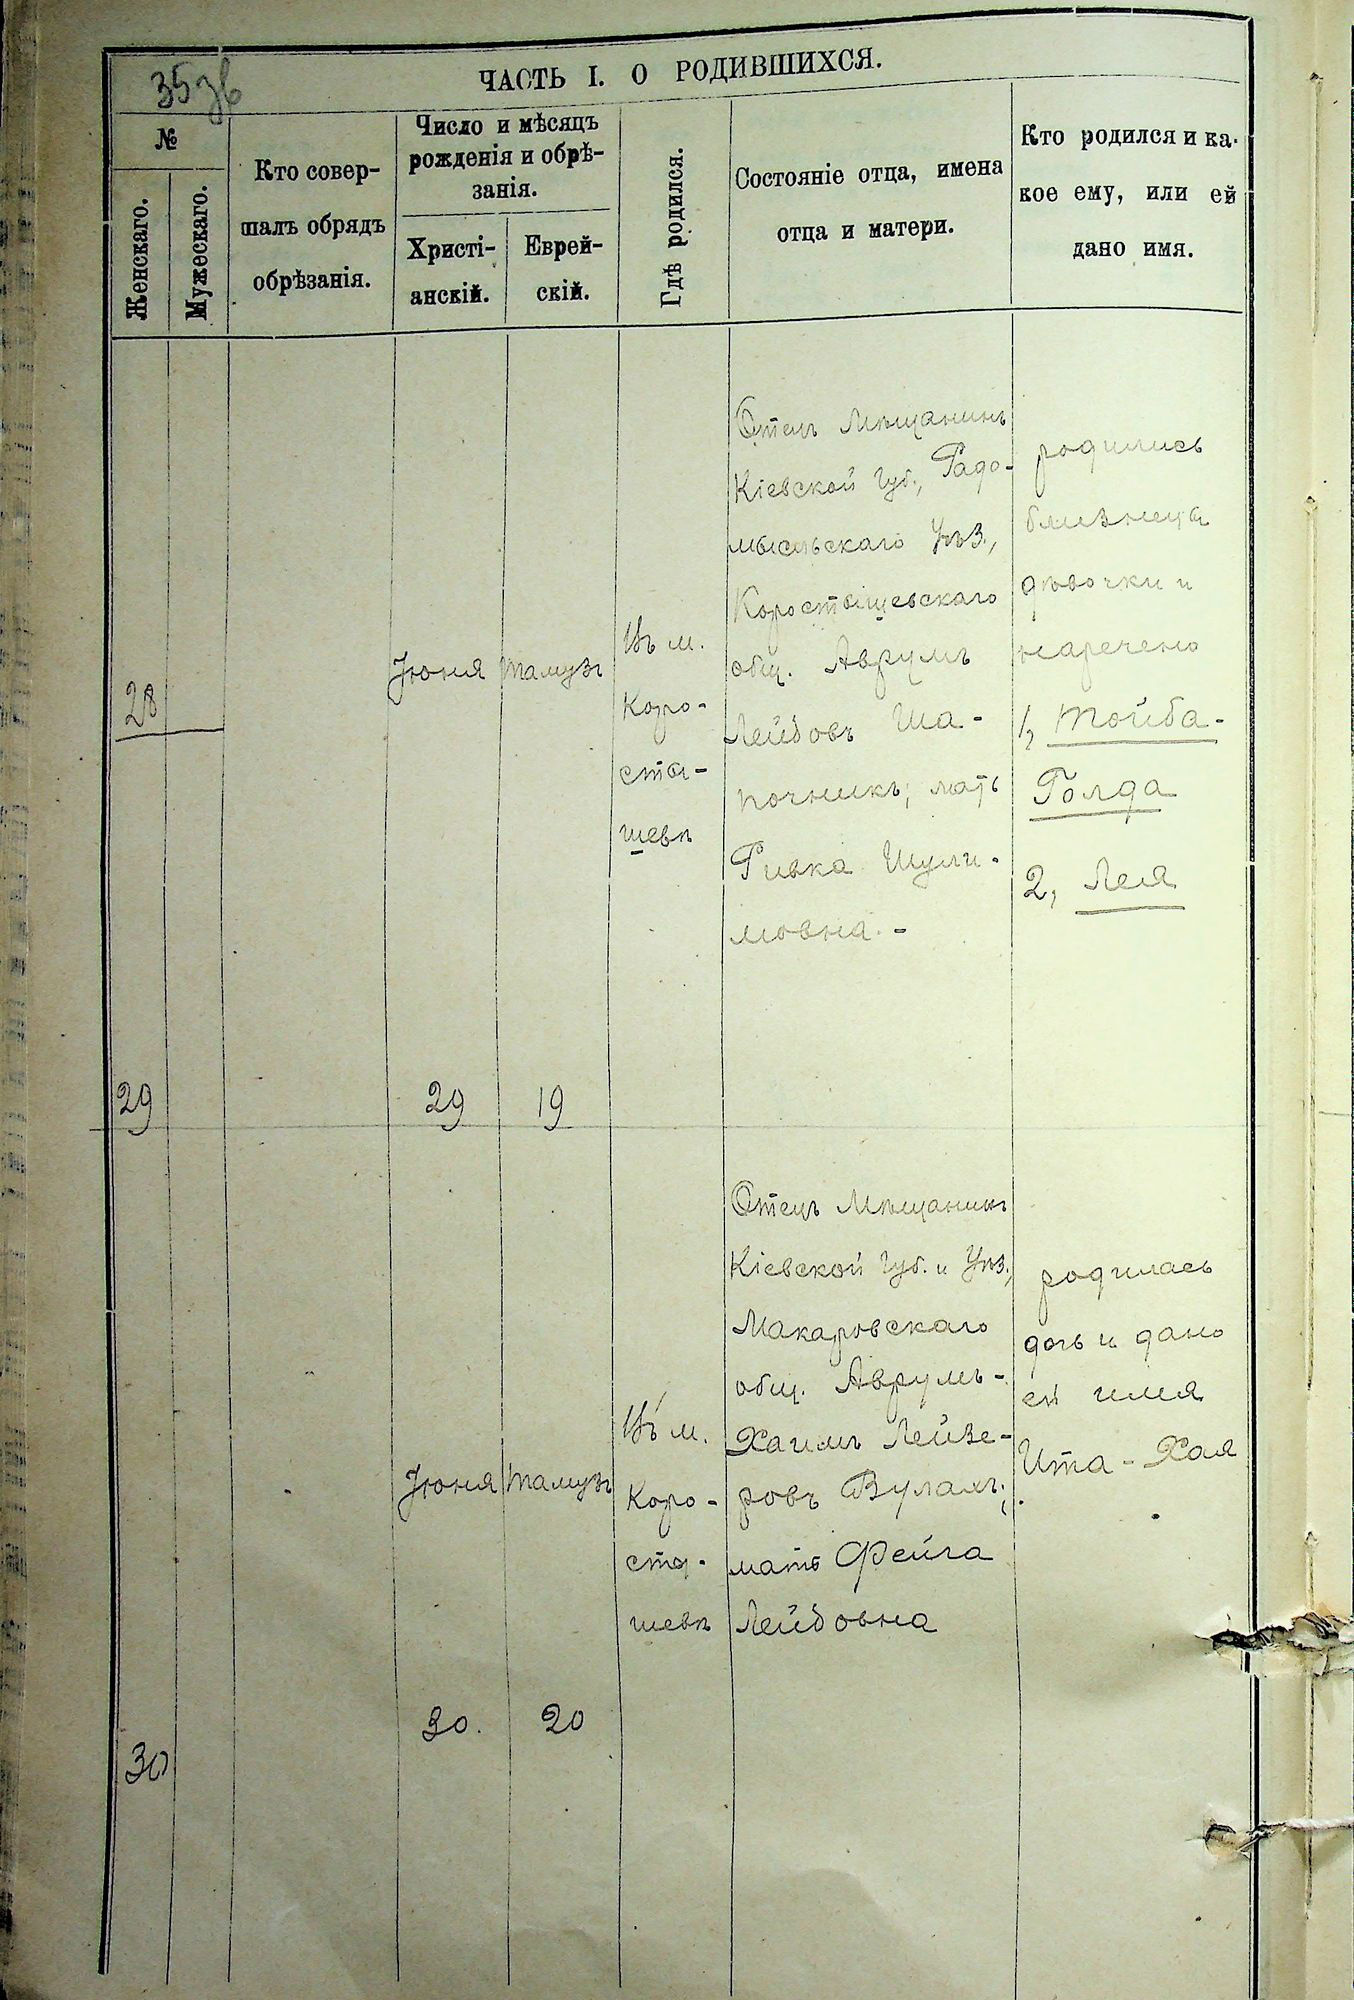 35 зв
ЧАСТЬ I. О РОДИВШИХСЯ.
№
Женскаго.
Мужескаго.
Кто совер-
шалъ обрядъ
обрѣзанія.
Число и мѣсяцъ
рожденія и обрѣ-
занія.
Христі-
анскій.
Еврей-
скій.
Гдѣ родился.
Состояніе отца, имена
отца и матери.
Кто родился и ка-
кое ему, или ей
дано имя.
28
29
Іюня
29
Тамузъ
19
Въ м.
Коро-
сты-
шевѣ
Отецъ Мѣщанинъ
Кіевской Губ., Радо-
мысльскаго Уѣз.,
Коростышевскаго
общ. Аврумъ
Лейбовъ Ша-
почникъ; мать
Ривка Шули-
мовна.-
родились
близнецы
дѣвочки и
наречено
1, Тойба-
Голда
2, Лея
30
Іюня
30.
Тамузъ
20
Въ м.
Коро-
сты-
шевѣ
Отецъ Мѣщанинъ
Кіевской Губ. и Уѣз.,
Макаровскаго
общ. Аврумъ-
Хаимъ Лейзе-
ровъ Вулахъ;
мать Фейга
Лейбовна
родилась
дочь и дано
ей имя
Ита-Хая